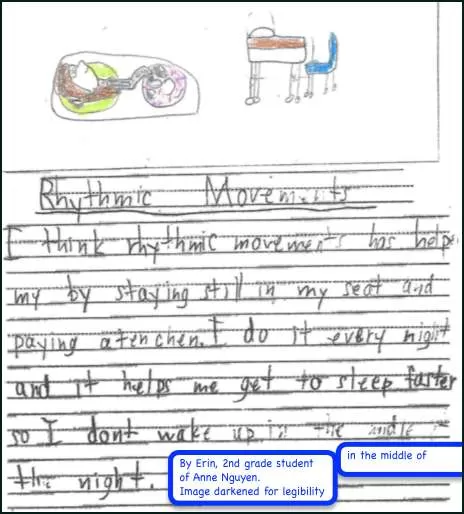 Rhythmic Movements
I think rhythmic movements has helpe
my by staying still in my seat and
paying atenchen. I do it every night
and it helps me get to sleep faster
so I dont wake up in the middle
the night.
in the middle of
By Erin, 2nd grade student
of Anne Nguyen.
Image darkened for legibility